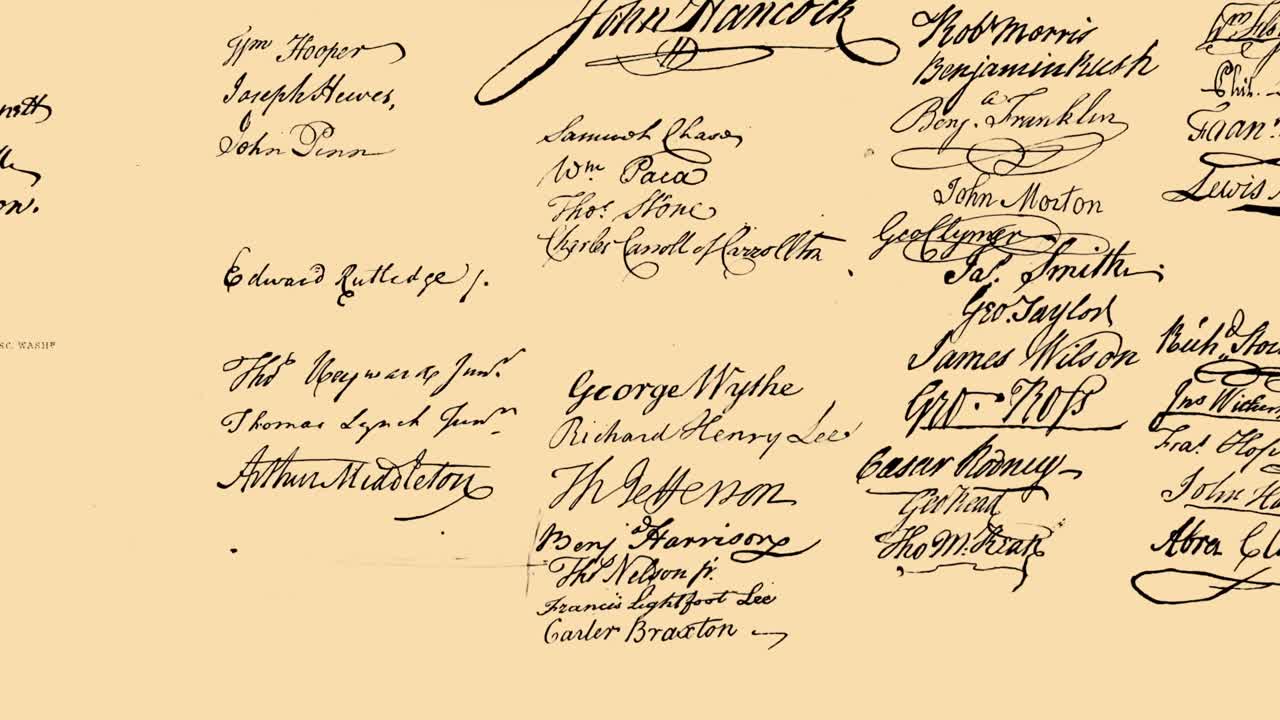 nett
on.
SC. WASHN
Wm Hooper
Joseph Hewes,
John Penn
Edward Rutledge /.
Thos Heyward Junr.
Thomas Lynch Junr.
Arthur Middleton
John Hancock
Samuel Chase
Wm Paca
Thos Stone
Charles Carroll of Carrollton
George Wythe
Richard Henry Lee
Th Jefferson
Benj Harrison
Thos Nelson jr.
Francis Lightfoot Lee
Carter Braxton
Robt Morris
Benjamin Rush
Benja. Franklin
John Morton
Geo Clymer
Jas. Smith.
Geo. Taylor
James Wilson
Geo. Ross
Caesar Rodney
Geo Read
Tho M:Kean
Wm Flo
Phil.
Fran.
Lewis
Richd. Stoc
Jno Wither
Fras. Hop
John Ha
Abra Cla